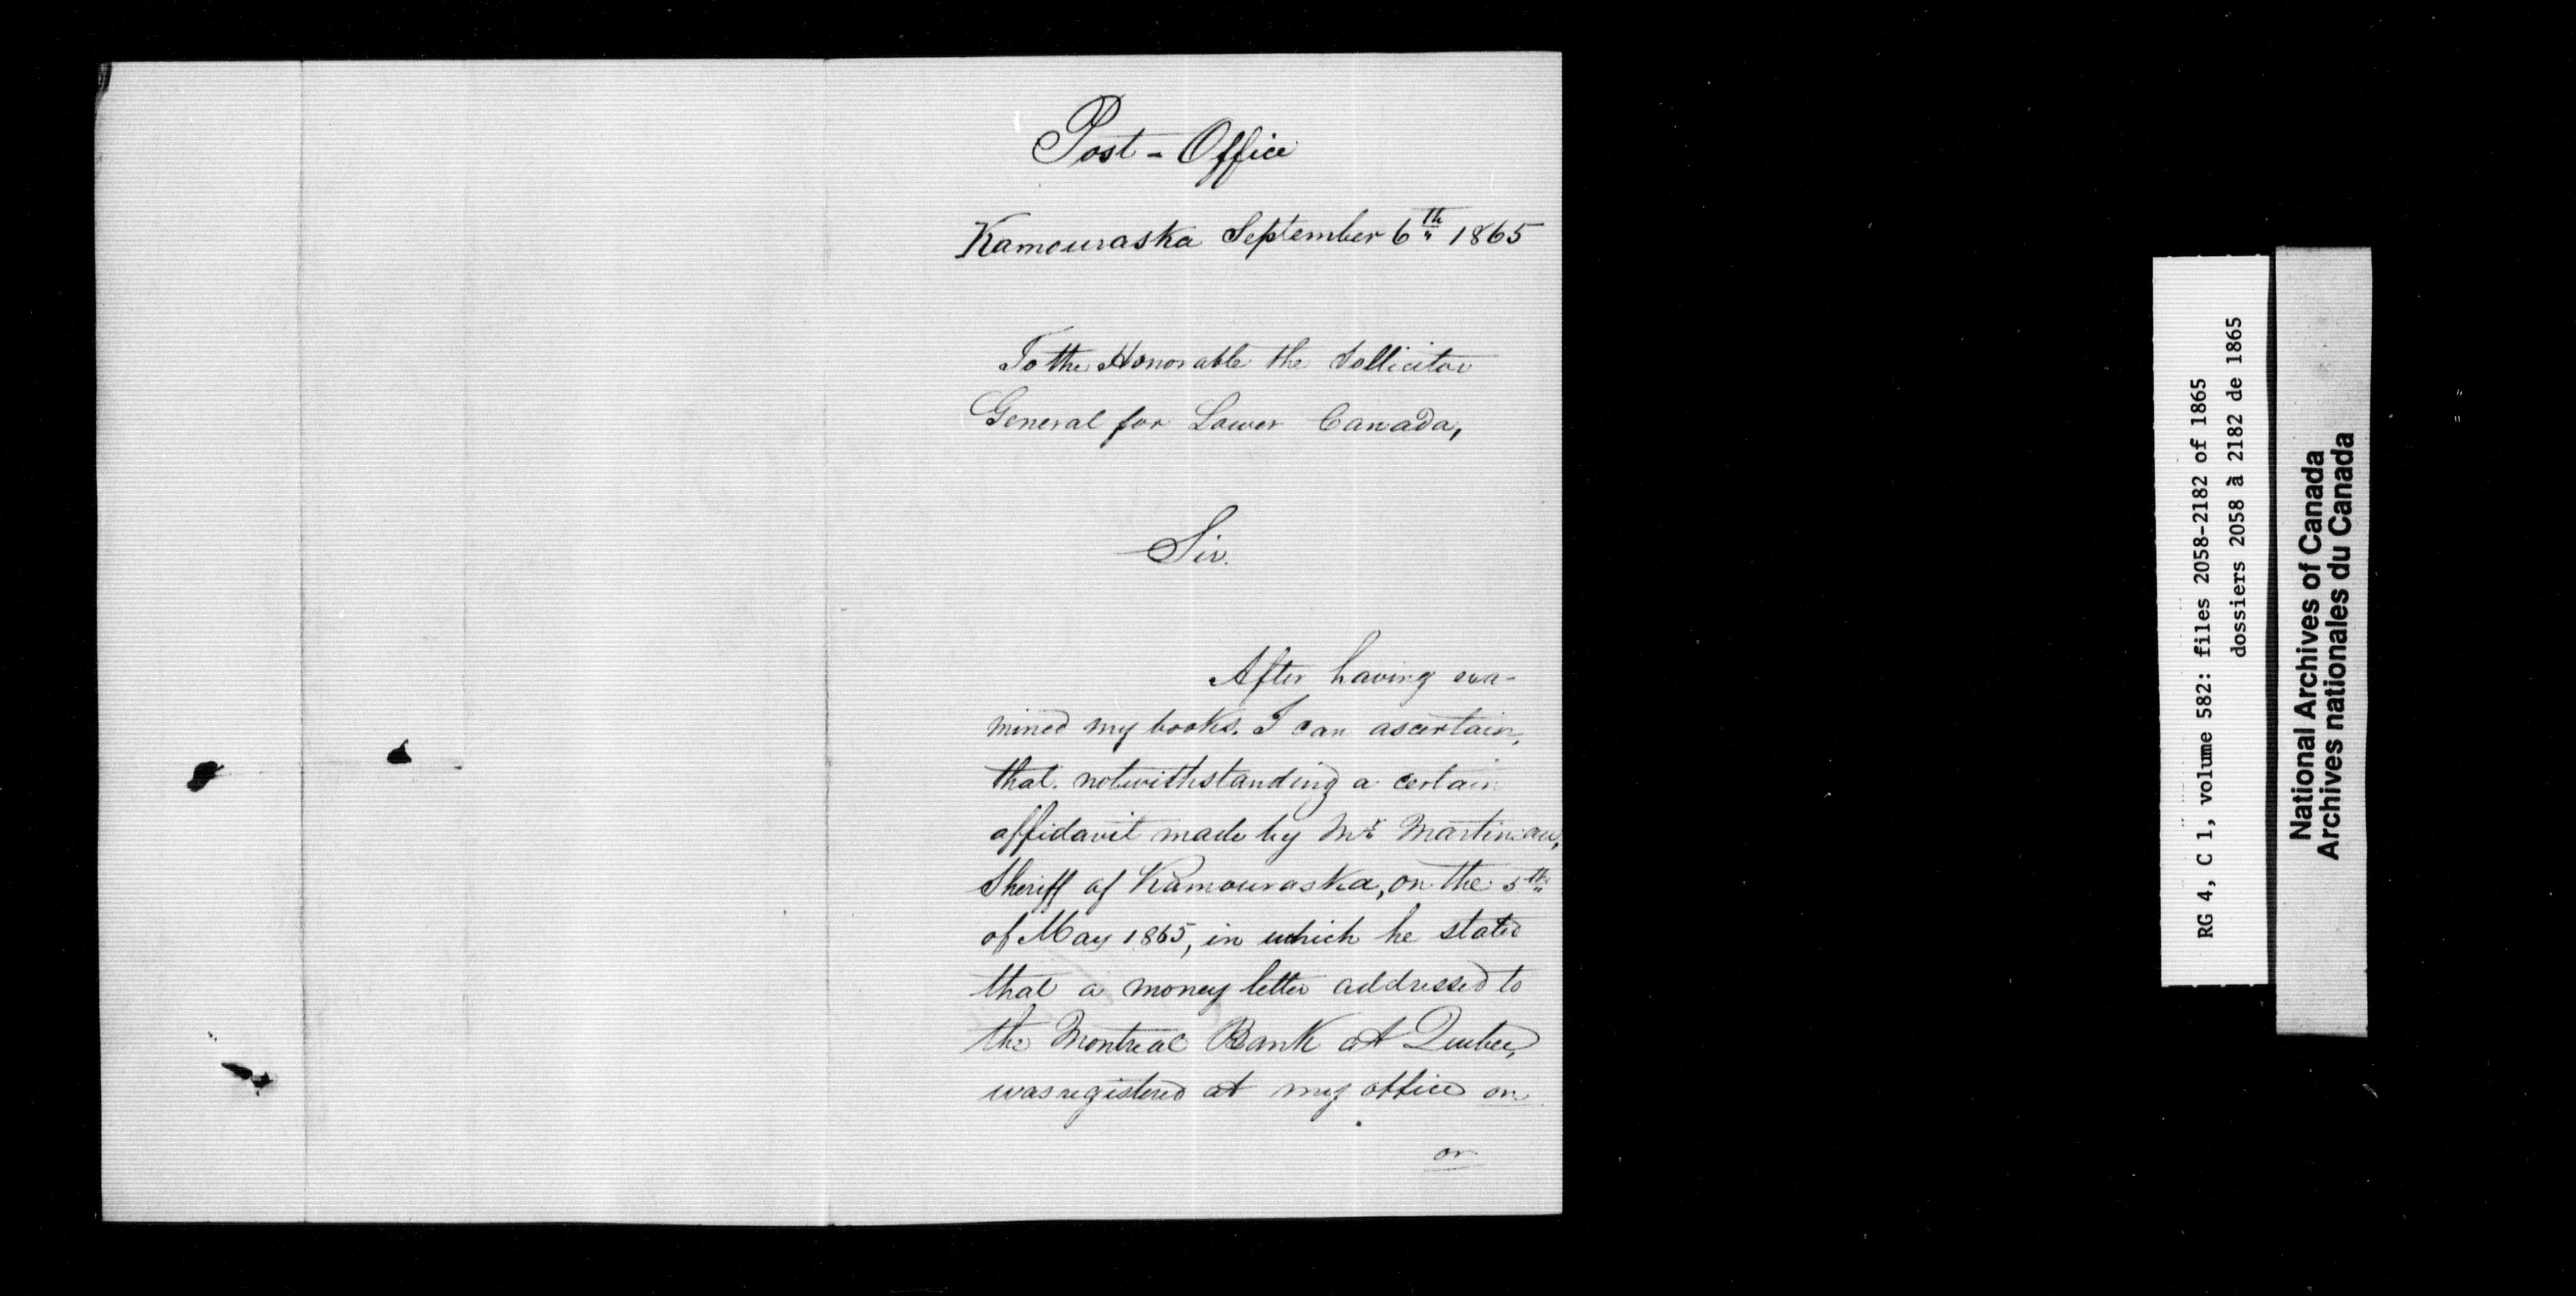 Post - Office
Kamouraska September 6th 1865
To the Honorable the Sollicitor
General for Lower Canada,
Sir.
After having exa-
mined my books. I can ascertain,
that. notwithstanding a certain
affidavit made by Mr Martineau,
Sheriff of Kamouraska, on the 5th
of May 1865, in which he stated
that a money letter addressed to
the Montreal Bank at Quebec,
was registered at my office on
on
RG 4, C 1, volume 582: files 2058-2182 of 1865
dossiers 2058 à 2182 de 1865
National Archives of Canada
Archives nationales du Canada